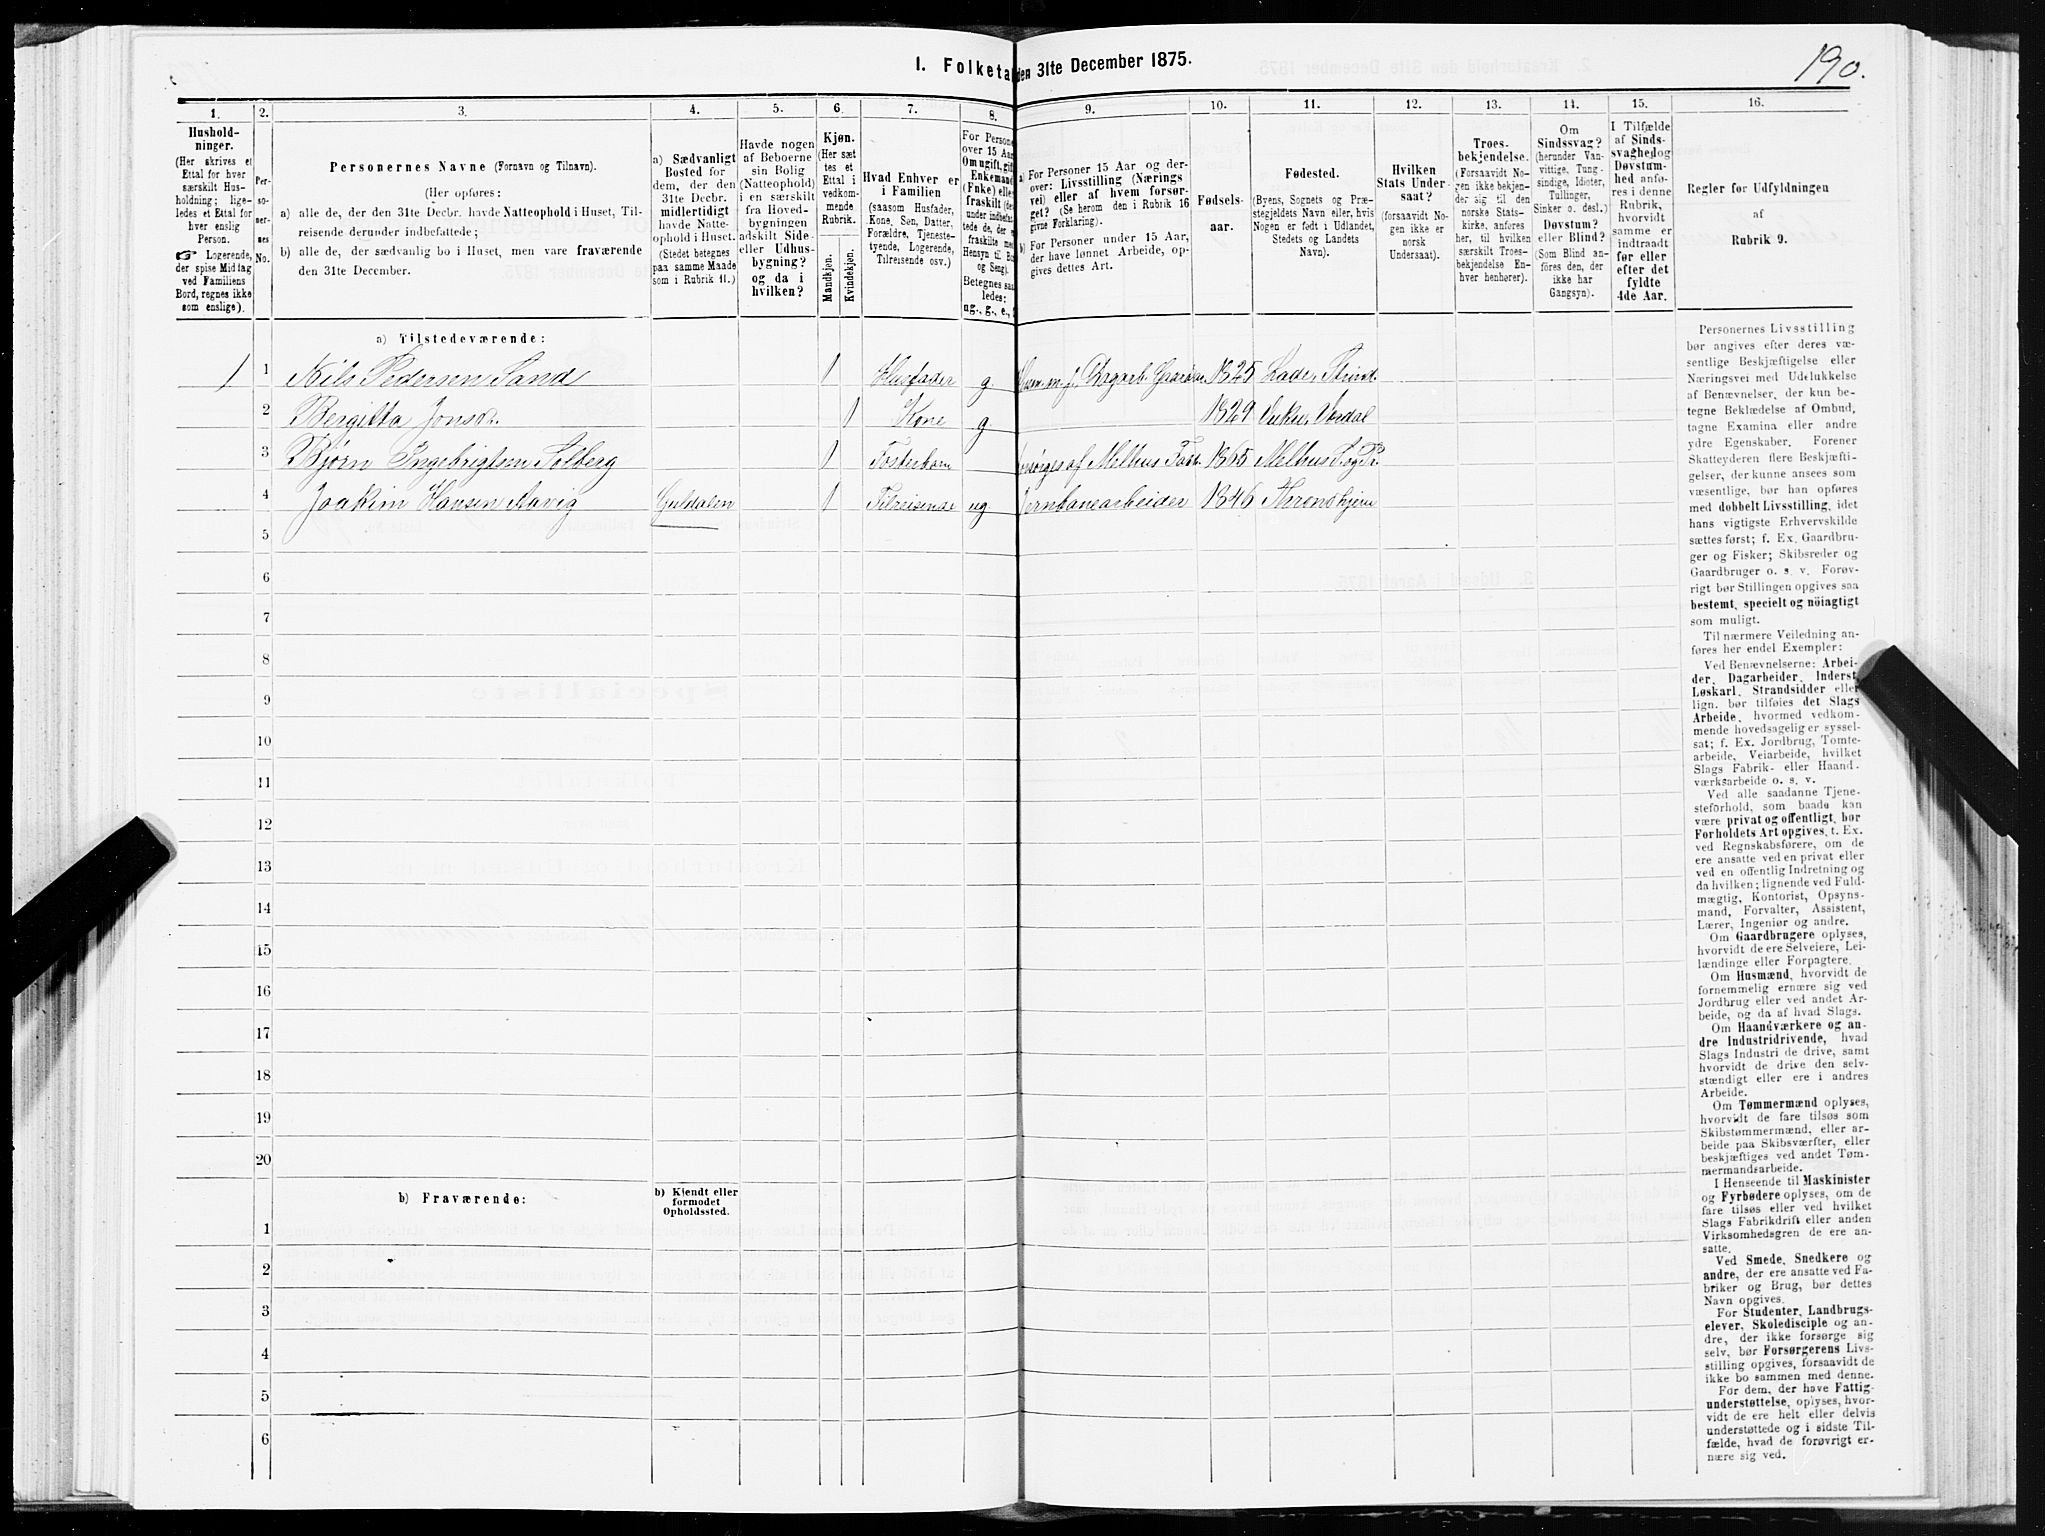 190.
I. Folketal den 31te December 1875.
1. 2. 3. 4. 5. 6. 7. 8. 9. 10. 11. 12. 13. 14. 15. 16.
Hushold-
ninger.
(Her skrives et
Ettal for hver
særskilt Hus-
holdning; lige-
ledes et Ettal for
hver enslig
Person.
☞ Logerende,
der spise Middag
ved Familiens
Bord, regnes ikke
som enslige).
Per-
so-
ner-
nes
No.
Personernes Navne (Fornavn og Tilnavn).
(Her opføres:
a) alle de, der den 31te Decbr. havde Natteophold i Huset, Til-
reisende derunder indbefattede;
b) alle de, der sædvanlig bo i Huset, men vare fraværende
den 31te December.
a) Sædvanligt
Bosted for
dem, der den
31te Decbr.
midlertidigt
havde Natte-
ophold i Huset.
(Stedet betegnes
paa samme Maade
som i Rubrik 11.)
Havde nogen
af Beboerne
sin Bolig
(Natteophold)
i en særskilt
fra Hoved-
bygningen
adskilt Side-
eller Udhus-
bygning?
og da i
hvilken?
Kjøn.
(Her sæt
tes et
Ettal i
vedkom-
mende
Rubrik.
Mandkjøn.
Kvindekjøn.
Hvad Enhver er
i Familien
(saasom Husfader,
Kone, Søn, Datter,
Forældre, Tjeneste-
tyende, Logerende,
Tilreisende osv.)
For Persone
over 15 Aar
Om ugift, gift
Enkemand
(Fnke) elle
fraskilt (de
under indbefat-
tede de, der e
fraskilte me
Hensyn til Bo
og Seng).
Betegnes saa
ledes:
ug., g., e.,
a) For Personer 15 Aar og der-
over: Livsstilling (Nærings
vei) eller af hvem forsør-
get? (Se herom den i Rubrik 16
givne Forklaring).
b) For Personer under 15 Aar,
der have lønnet Arbeide, op-
gives dettes Art.
Fødsels-
aar.
Fødested.
(Byens, Sognets og Præ-
stegjeldets Navn eller, hvis
Nogen er født i Udlandet,
Stedets og Landets
Navn).
Hvilken
Stats Under-
saat?
(forsaavidt No-
gen ikke er
norsk
Undersaat).
Troes-
bekjendelse.
(Forsaavidt No-
gen ikke bekjen-
der sig til den
norske Stats-
kirke, anføres
her, til hvilken
særskilt Troes-
bekjendelse En-
hver henhører).
Om
Sindssvag?
(herunder Van-
vittige, Tung-
sindige, Idioter,
Tullinger,
Sinker o. desl.)
Døvstum?
eller Blind?
(Som Blind an-
føres den, der
ikke har
Gangsyn).
I Tilfælde
af Sinds-
svaghed og
Døvstum-
hed anfø-
res i denne
Rubrik,
hvorvidt
samme er
indtraadt
før eller
efter det
fyldte
4de Aar.
Regler for Udfyldningen
af
Rubrik 9.
a) Tilstedeværende:
1 1 Nils Pedersen Sand 1 Husfader g Dagarb. 1825 Lade, Strind.
2 Bergitta Jonsd. 1 Kone g 1829 Vuku, Værdal
3 Bjørn Ingebrigtsen Solberg 1 Fosterbarn af Melhus Fatt. 1865 Melhus S. og P.
4 Joakim Hansen Aavig Guldalen 1 Tilreisende ug Jernbanearbeider 1846 Throndhjem
5
6
7
8
9
10
11
12
13
14
15
16
17
18
19
20
b) Fraværende:
b) Kjendt eller
formodet
Opholdssted.
1
2
3
4
5
6
Personernes Livsstilling
bør angives efter deres væ-
sentlige Beskjæftigelse eller
Næringsvei med Udelukkelse
af Benævnelser, der kun be-
tegne Beklædelse af Ombud,
tagne Examina eller andre
ydre Egenskaber. Forener
Skatteyderen flere Beskjæfti-
gelser, der kunne ansees som
væsentlige, bør han opføres
med dobbelt Livsstilling, idet
hans vigtigste Erhvervskilde
sættes først; f. Ex. Gaardbru-
ger og Fisker; Skibsreder og
Gaardbruger o. s. v. Forøv-
rigt bør Stillingen opgives saa
bestemt, specielt og nöiagtigt
som muligt.
Til nærmere Veiledning an-
føres her endel Exempler:
Ved Benævnelserne: Arbei-
der, Dagarbeider, Inderst,
Løskarl, Strandsidder eller
lign. bør tilføies det Slags
Arbeide, hvormed vedkom-
mende hovedsagelig er syssel-
sat; f. Ex. Jordbrug, Tomte-
arbeide, Veiarbeide, hvilket
Slags Fabrik- eller Haand-
værksarbeide o. s. v.
Ved alle saadanne Tjene-
steforhold, som baade kan
være privat og offentligt, bør
Forholdets Art opgives, t. Ex.
ved Regnskabsførere, om de
ere ansatte ved en privat eller
ved en offentlig Indretning og
da hvilken; lignende ved Fuld-
mægtig, Kontorist, Opsyns-
mand, Forvalter, Assistent,
Lærer, Ingeniør og andre.
Om Gaardbrugere oplyses,
hvorvidt de ere Selveiere, Lei-
lændinge eller Forpagtere.
Om Husmænd, hvorvidt de
fornemmelig ernære sig ved
Jordbrug eller ved andet Ar-
beide, og da af hvad Slags.
Om Haandværkere og an-
dre Industridrivende, hvad
Slags Industri de drive, samt
hvorvidt de drive den selv-
stændigt eller ere i andres
Arbeide.
Om Tømmermænd oplyses,
hvorvidt de fare tilsøs som
Skibstømmermænd, eller ar-
beide paa Skibsværfter, eller
beskjæftiges ved andet Tøm-
mermandsarbeide.
I Henseende til Maskinister
og Fyrbødere oplyses, om de
fare tilsøs eller ved hvilket
Slags Fabrikdrift eller anden
Virksomhedsgren de ere an-
satte.
Ved Smede, Snedkere og
andre, der ere ansatte ved Fa-
briker og Brug, bør dettes
Navn opgives.
For Studenter, Landbrugs-
elever, Skoledisciple og an-
dre, der ikke forsørge sig
selv, bør Forsørgerens Livs-
stilling opgives, forsaavidt de
ikke bo sammen med denne.
For dem, der have Fattig-
understøttelse, oplyses, hvor-
vidt de ere helt eller delvis
understøttede og i sidste Til-
fælde, hvad de forøvrigt er-
nære sig ved.